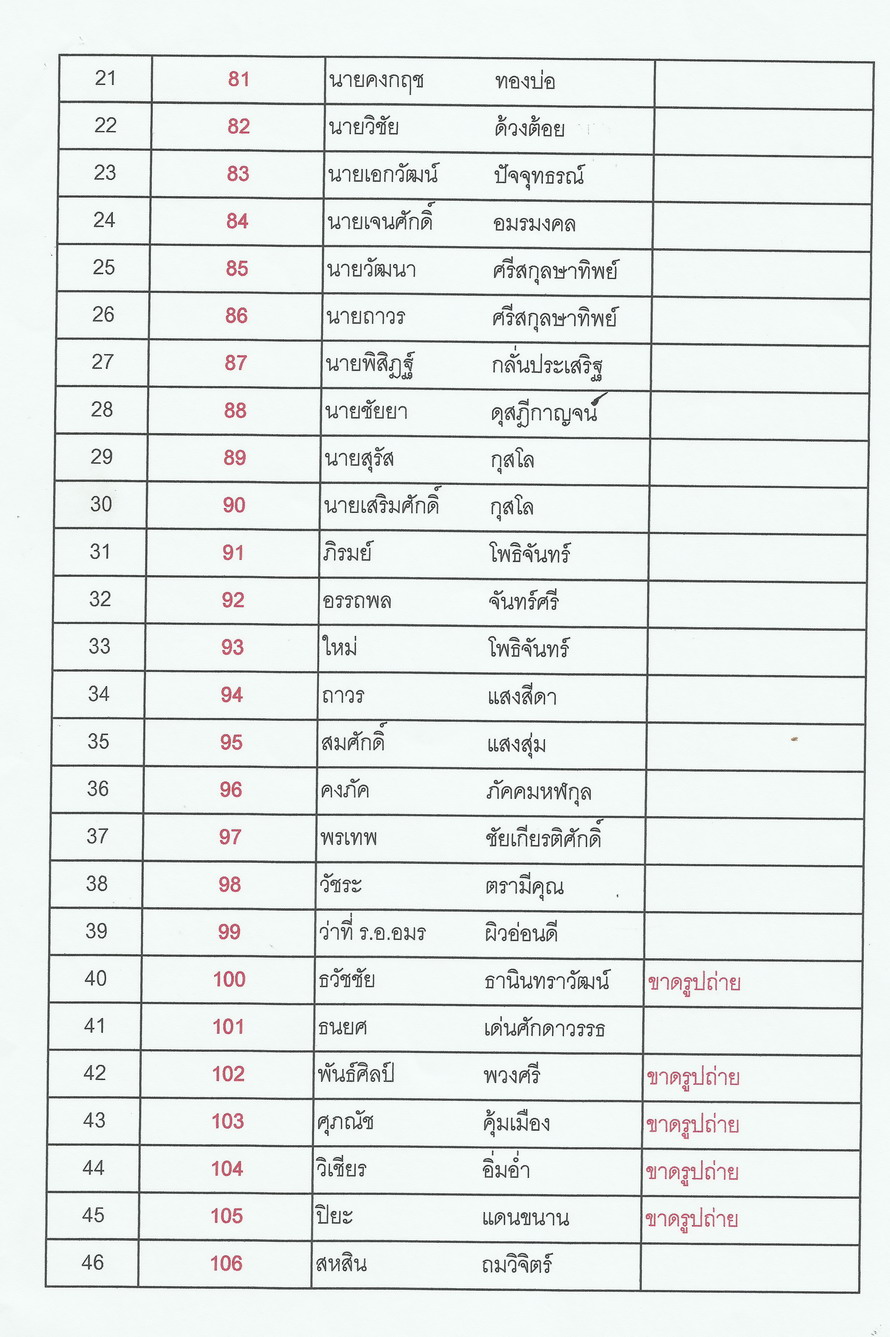 21 81 นายคงกฤช ทองบ่อ
22 82 นายวิชัย ด้วงต้อย
23 83 นายเอกวัฒน์ ปัจจุทธรณ์
24 84 นายเจนศักดิ์ อมรมงคล
25 85 นายวัฒนา ศรีสกุลษาทิพย์
26 86 นายถาวร ศรีสกุลษาทิพย์
27 87 นายพิสิฏฐ์ กลั่นประเสริฐ
28 88 นายชัยยา ดุสฎีกาญจน์
29 89 นายสุรัส กุสโล
30 90 นายเสริมศักดิ์ กุสโล
31 91 ภิรมย์ โพธิจันทร์
32 92 อรรถพล จันทร์ศรี
33 93 ใหม่ โพธิจันทร์
34 94 ถาวร แสงสีดา
35 95 สมศักดิ์ แสงสุ่ม
36 96 คงภัค ภัคคมหฬกุล
37 97 พรเทพ ชัยเกียรติศักดิ์
38 98 วัชระ ตรามีคุณ
39 99 ว่าที่ ร.อ.อมร ผิวอ่อนดี
40 100 ธวัชชัย ธานินทราวัฒน์ ขาดรูปถ่าย
41 101 ธนยศ เด่นศักดาวรรธ
42 102 พันธ์ศิลป์ พวงศรี ขาดรูปถ่าย
43 103 ศุภณัช คุ้มเมือง ขาดรูปถ่าย
44 104 วิเชียร อิ่มอ่ำ ขาดรูปถ่าย
45 105 ปิยะ แดนขนาน ขาดรูปถ่าย
46 106 สหสิน ถมวิจิตร์